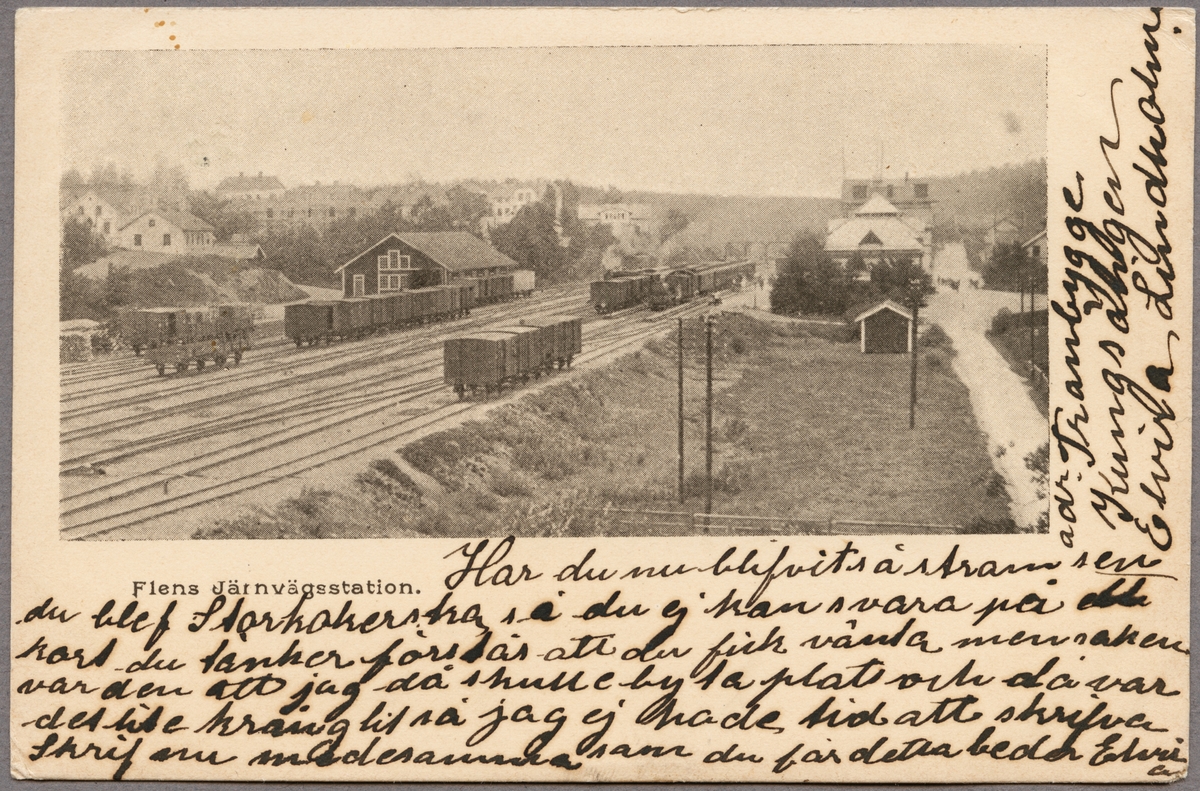 Flens Järnvägsstation.
Har du nu blifvit så stram sen
du blef Storkokerska så du ej kan svara på ett
kort du tänker förstås att du fick vänta men saken
var den att jag då skulle byta plats och då var
det lite krångligt så jag ej hade tid att skrifva
Skrif nu medesamma som du får detta beder Elvira
adr Tranbygge
Kungsängen
Elvira Lindholm.